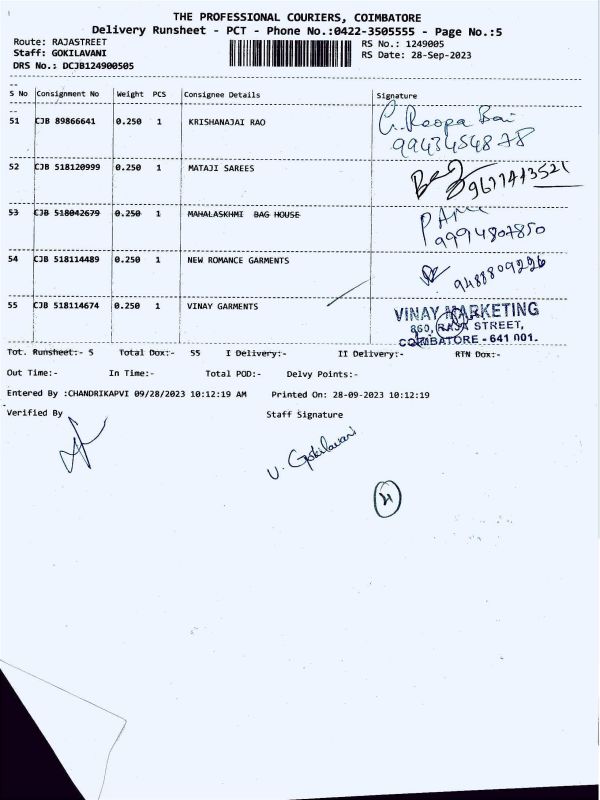 THE PROFESSIONAL COURIERS, COIMBATORE
Delivery Runsheet - PCT - Phone No.:0422-3505555 - Page No.:5
Route: RAJASTREET RS No.: 1249005
Staff: GOKILAVANI RS Date: 28-Sep-2023
DRS No.: DCJB124900505
S No Consignment No Weight PCS Consignee Details Signature
51 CJB 89866641 0.250 1 KRISHANAJAI RAO G. Roopa Bai
9943454878
52 CJB 518120999 0.250 1 MATAJI SAREES 9677413521
53 CJB 518042679 0.250 1 MAHALASKHMI BAG HOUSE
9994807850
54 CJB 518114489 0.250 1 NEW ROMANCE GARMENTS 9488809226
55 CJB 518114674 0.250 1 VINAY GARMENTS VINAY MARKETING
860, RAJA STREET,
COIMBATORE - 641 001.
Tot. Runsheet:- 5 Total Dox:- 55 I Delivery:- II Delivery:- RTN Dox:-
Out Time:- In Time:- Total POD:- Delvy Points:-
Entered By :CHANDRIKAPVI 09/28/2023 10:12:19 AM Printed On: 28-09-2023 10:12:19
Verified By Staff Signature
V. Gokilavani